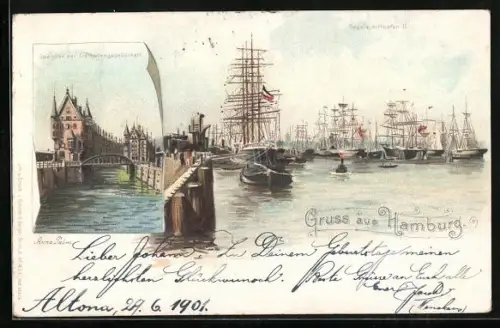 Segelschiffhafen II.
Speicher der Lagerhausgesellschaft
Gruss aus Hamburg.
Lieber Johann Zu Deinem Geburtstage meinen
herzlichsten Glückwunsch. Beste Grüsse an Euch alle
Euer
Altona 27. 6. 1901.